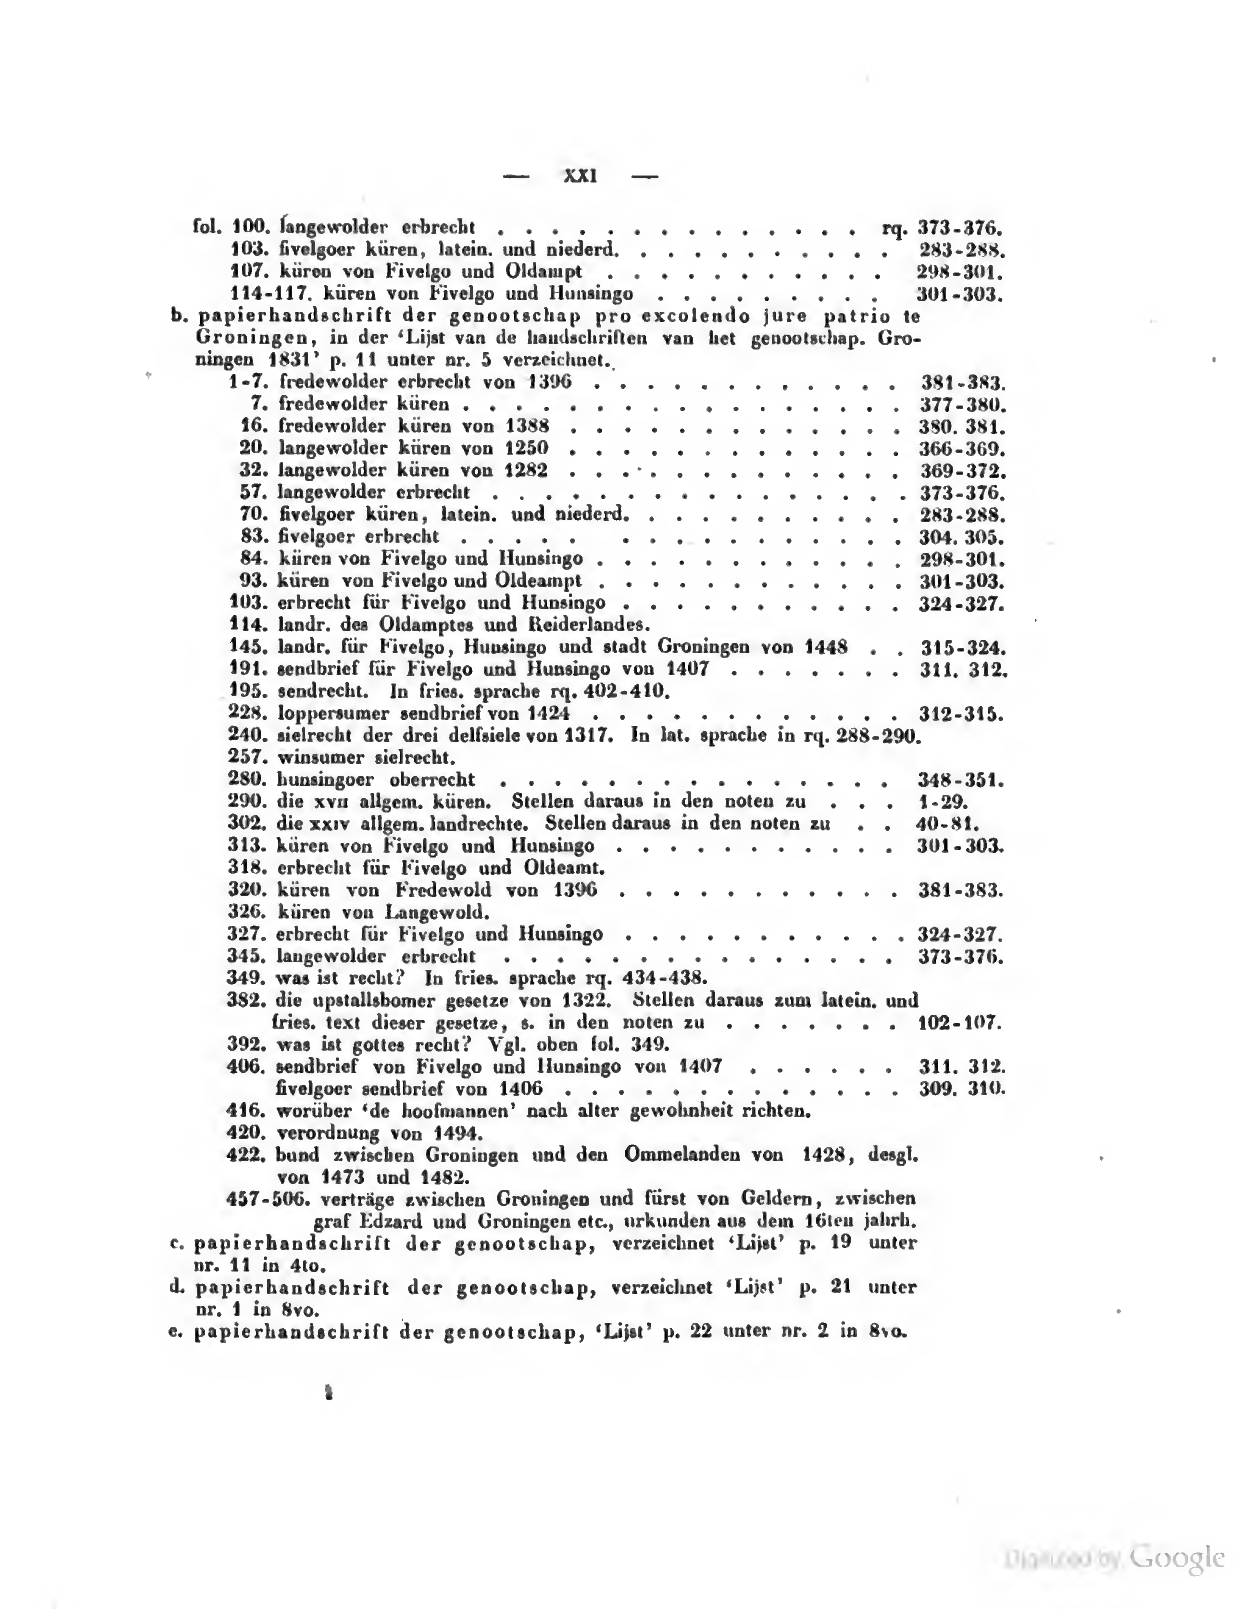 — XXI —
fol. 100. langewolder erbrecht . . . . . . . . . . . . . . rq. 373-376.
103. fivelgoer küren, latein. und niederd. . . . . . . . . . . 283-288.
107. küren von Fivelgo und Oldampt . . . . . . . . . . . 298-301.
114-117. küren von Fivelgo und Hunsingo . . . . . . . . . 301-303.
b. papierhandschrift der genootschap pro excolendo jure patrio te
Groningen, in der ‘Lijst van de handschriften van het genootschap. Gro-
ningen 1831’ p. 11 unter nr. 5 verzeichnet.
1-7. fredewolder erbrecht von 1396 . . . . . . . . . . . . 381-383.
7. fredewolder küren . . . . . . . . . . . . . . . . . 377-380.
16. fredewolder küren von 1388 . . . . . . . . . . . . . 380. 381.
20. langewolder küren von 1250 . . . . . . . . . . . . . 366-369.
32. langewolder küren von 1282 . . . . . . . . . . . . . 369-372.
57. langewolder erbrecht . . . . . . . . . . . . . . . . 373-376.
70. fivelgoer küren, latein. und niederd. . . . . . . . . . . 283-288.
83. fivelgoer erbrecht . . . . . . . . . . . . . . . . 304. 305.
84. küren von Fivelgo und Hunsingo . . . . . . . . . . . . 298-301.
93. küren von Fivelgo und Oldeampt . . . . . . . . . . . . 301-303.
103. erbrecht für Fivelgo und Hunsingo . . . . . . . . . . . 324-327.
114. landr. des Oldamptes und Reiderlandes.
145. landr. für Fivelgo, Hunsingo und stadt Groningen von 1448 . . 315-324.
191. sendbrief für Fivelgo und Hunsingo von 1407 . . . . . . . 311. 312.
195. sendrecht. In fries. sprache rq. 402-410.
228. loppersumer sendbrief von 1424 . . . . . . . . . . . . 312-315.
240. sielrecht der drei delfsiele von 1317. In lat. sprache in rq. 288-290.
257. winsumer sielrecht.
280. hunsingoer oberrecht . . . . . . . . . . . . . . . 348-351.
290. die XVII allgem. küren. Stellen daraus in den noten zu . . . 1-29.
302. die XXIV allgem. landrechte. Stellen daraus in den noten zu . . 40-81.
313. küren von Fivelgo und Hunsingo . . . . . . . . . . . 301-303.
318. erbrecht für Fivelgo und Oldeamt.
320. küren von Fredewold von 1396 . . . . . . . . . . . 381-383.
326. küren von Langewold.
327. erbrecht für Fivelgo und Hunsingo . . . . . . . . . . . 324-327.
345. langewolder erbrecht . . . . . . . . . . . . . . . 373-376.
349. was ist recht? In fries. sprache rq. 434-438.
382. die upstallsbomer gesetze von 1322. Stellen daraus zum latein. und
fries. text dieser gesetze, s. in den noten zu . . . . . . . 102-107.
392. was ist gottes recht? Vgl. oben fol. 349.
406. sendbrief von Fivelgo und Hunsingo von 1407 . . . . . . 311. 312.
fivelgoer sendbrief von 1406 . . . . . . . . . . . . . 309. 310.
416. worüber ‘de hoofmannen’ nach alter gewohnheit richten.
420. verordnung von 1494.
422. bund zwischen Groningen und den Ommelanden von 1428, desgl.
von 1473 und 1482.
457-506. verträge zwischen Groningen und fürst von Geldern, zwischen
graf Edzard und Groningen etc., urkunden aus dem 16ten jahrh.
c. papierhandschrift der genootschap, verzeichnet ‘Lijst’ p. 19 unter
nr. 11 in 4to.
d. papierhandschrift der genootschap, verzeichnet ‘Lijst’ p. 21 unter
nr. 1 in 8vo.
e. papierhandschrift der genootschap, ‘Lijst’ p. 22 unter nr. 2 in 8vo.
Digitized by Google